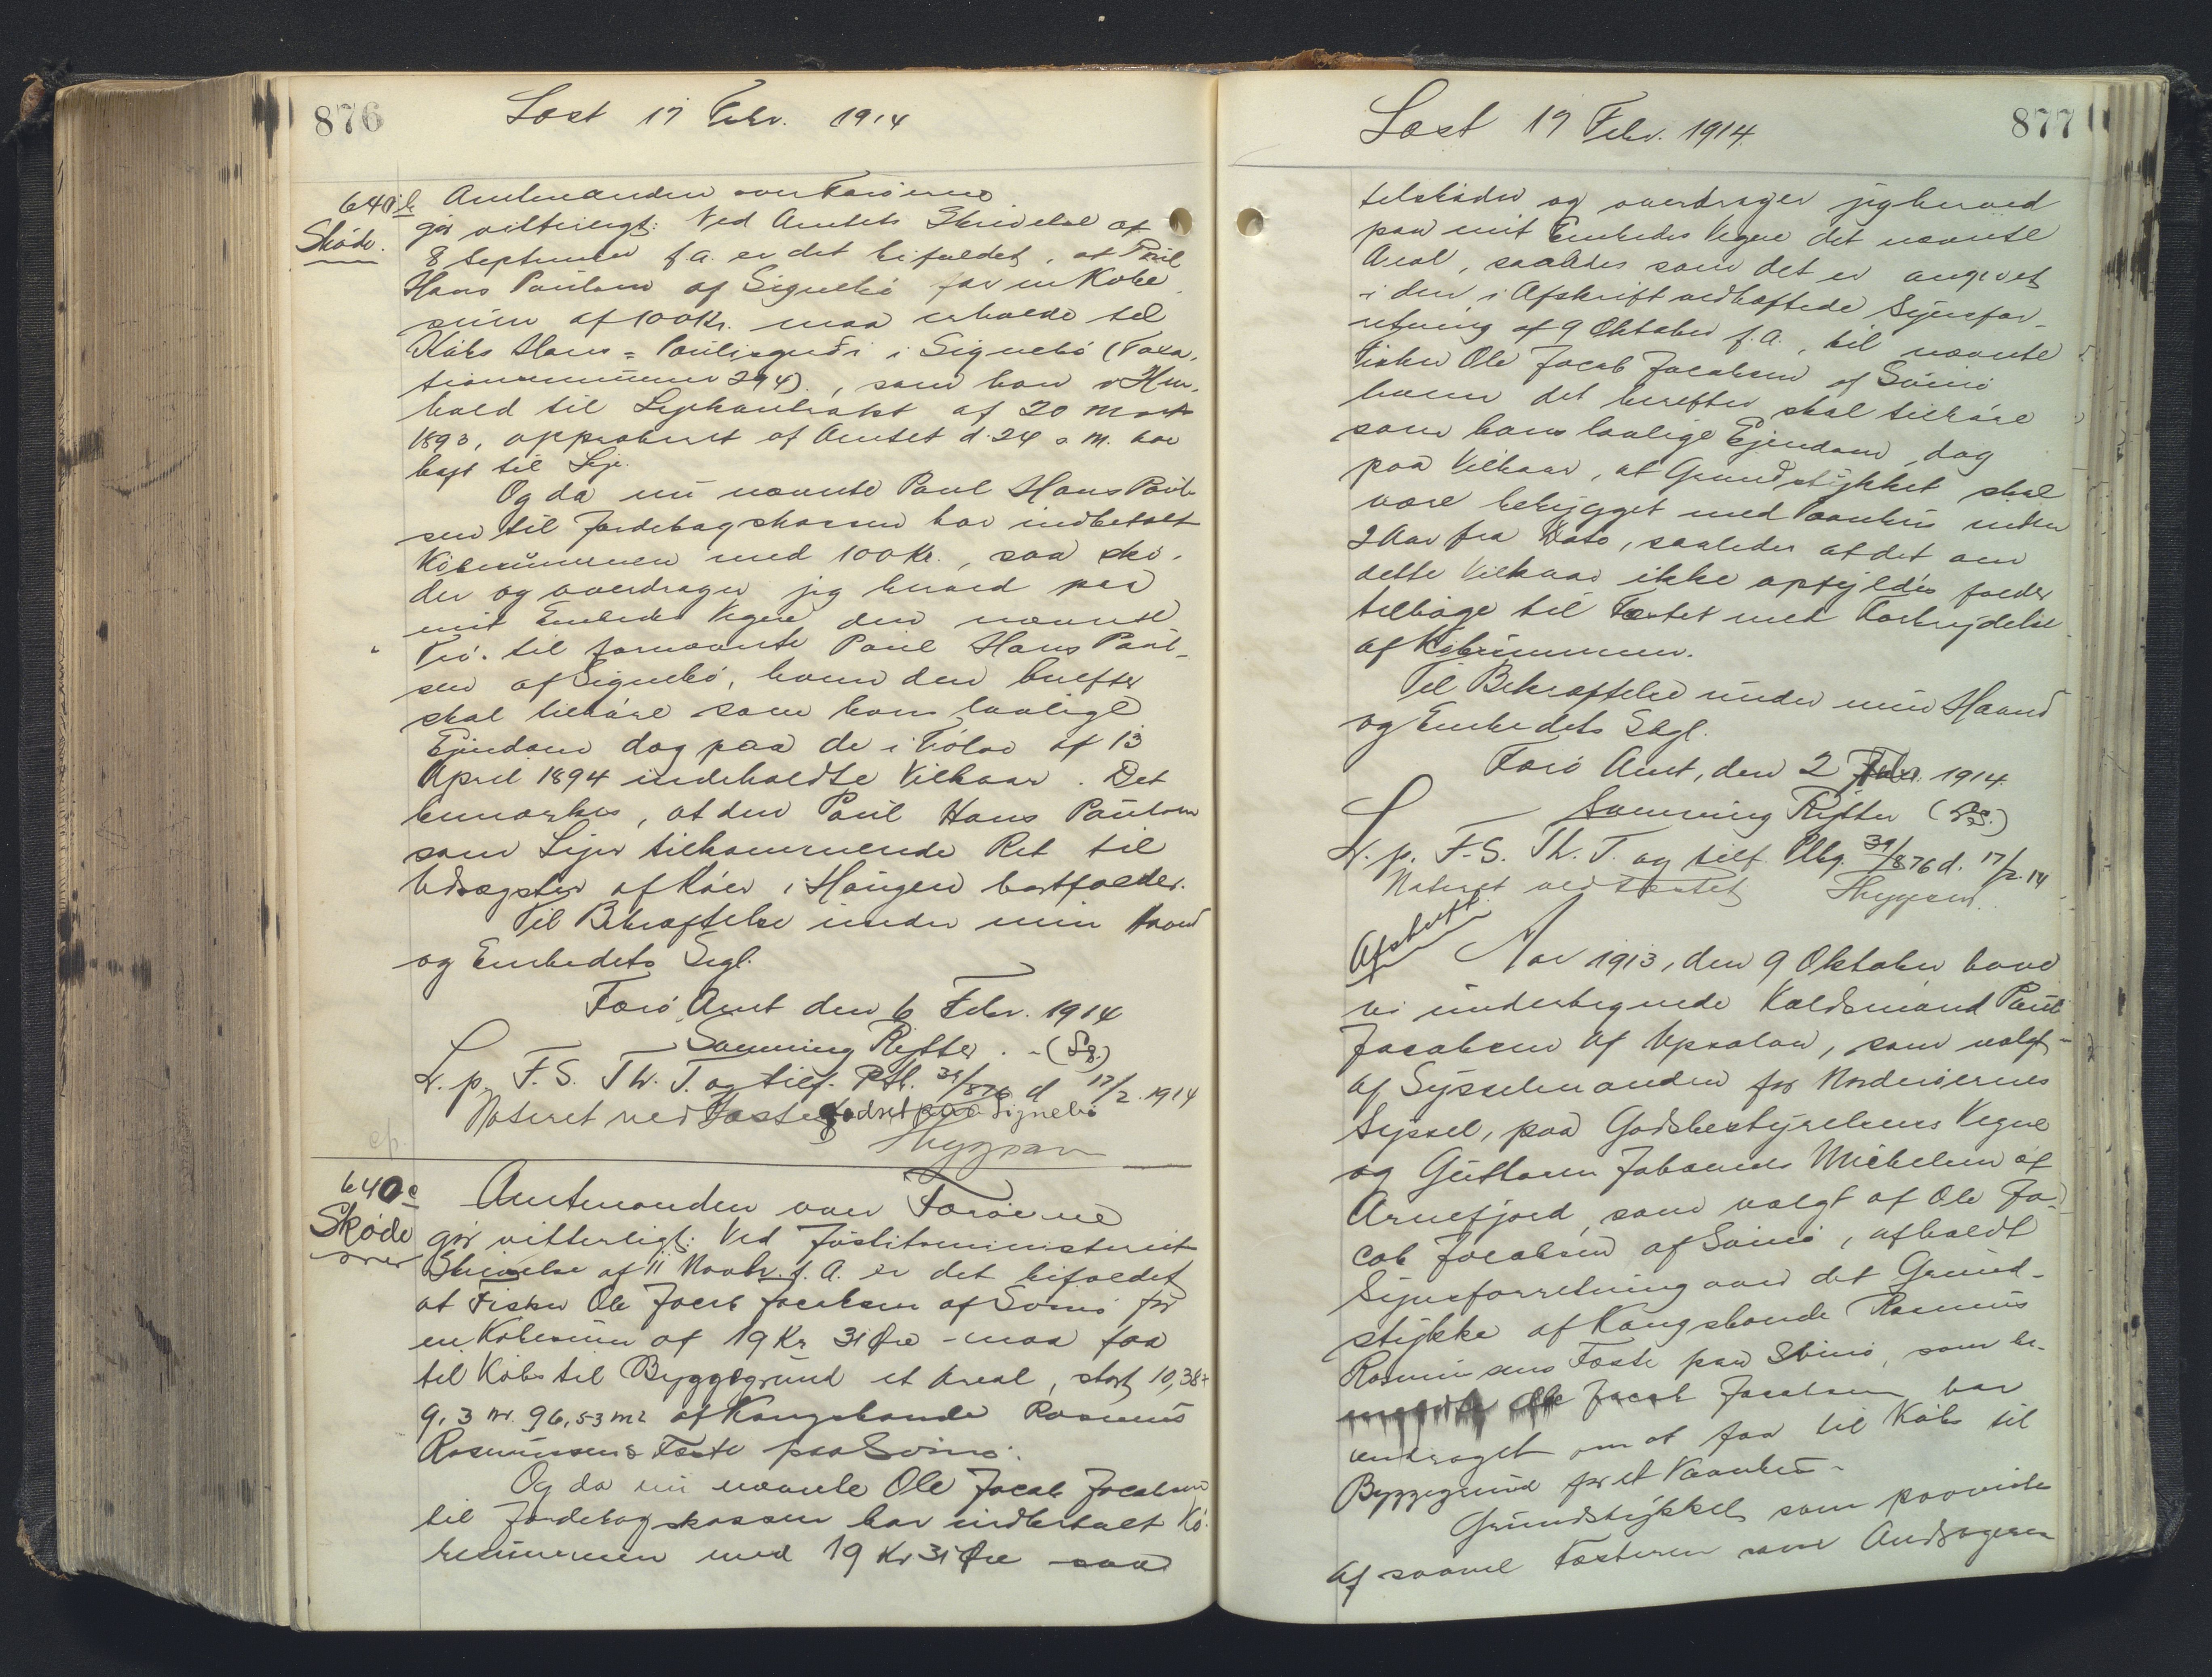 876
Læst 17 Febr. 1914
640 b
Skøde.
Amtmanden over Færøerne
gør vitterligt: Ved Amtets Skrivelse af
8 September f.a. er det bifaldet, at Poul
Hans Poulsen af Signebø for en Købe
sum af 100 Kr. maa erholde til
Købs Hans-Paulisgerði i Signebø (Taxa-
tionsnummer 294), som han i Hen-
hold til Lejekontrakt af 20 Marts
1893, approberet af Amtet d. 24 s.M. har
haft til Leje.
Og da nu nævnte Poul Hans Poul-
sen til Jordebogskassen har indbetalt
Købesummen med 100 Kr., saa skø-
der og overdrager jeg herved paa
mit Embedes Vegne den nævnte
Trø til fornævnte Poul Hans Poul-
sen af Signebø, hvem den herefter
skal tilhøre som hans lovlige
Ejendom dog paa de i Trølov af 13
April 1894 indeholdte Vilkaar. Det
bemærkes, at den Poul Hans Poulsen
som Lejer tilkommende Ret til
Udsægster af Køer i Haugen bortfalder.
Til Bekræftelse under min Haand
og Embedets Segl.
Færø Amt den 6 Febr. 1914
Svenning Rytter. (LS.)
L. p. F.S. Th. T. og tilf. Ptb. 39/876 d 17/2. 1914
Noteret ved Fæstegodset paa Signebø
Thygesen
640 c
Skøde
Amtmanden over Færøerne
gør vitterligt: Ved Justitsministeriets
Skrivelse af 11 Novbr. f.A. er det bifaldet
at Fisker Ole Jacob Jacobsen af Svinø for
en Købesum af 19 Kr 31 Øre - maa faa
til Købs til Byggegrund et Areal, stort 10,38 +
9,3 m. 96,53 m2 af Kongsbonde Rasmus
Rasmussens Fæste paa Svinø.
Og da nu nævnte Ole Jacob Jacobsen
til Jordebogskassen har indbetalt Kø-
besummen med 19 Kr 31 Øre saa
877
Læst 17 Febr. 1914.
tilskøder og overdrager jeg herved
paa mit Embedes Vegne det nævnte
Areal, saaledes som det er angivet
i den i Afskrift vedhæftede Synsfor-
retning af 9 Oktober f.A., til nævnte
Fisker Ole Jacob Jacobsen af Svinø
hvem det herefter skal tilhøre
som hans lovlige Ejendom, dog
paa Vilkaar, at Grundstykket skal
være bebygget med Vaanhus inden
2 Aar fra Dato, saaledes at det om
dette Vilkaar ikke opfyldes falder
tilbage til Fæstet med Fortrydelse
af Købesummen.
Til Bekræftelse under min Haand
og Embedets Segl.
Færø Amt, den 2 Febr. 1914.
Svenning Rytter (LS.)
L. p. F.S. Th. T. og tilf. Ptbg. 39/876 d. 17/2. 14
Noteret ved Fæstet Thygesen.
Afskrift
Aar 1913, den 9 Oktober have
vi undertegnede Kaldsmand Poul
Jacobsen af Upsalon, som valgt
af Sysselmanden for Norderøernes
Syssel, paa Godsbestyrelsens Vegne
og Guttorm Johannes Michelsen af
Arnefjord, som valgt af Ole Ja-
cob Jacobsen af Svinø, afholdt
Synsforretning over det Grund-
stykke af Kongsbonde Rasmus
Rasmussens Fæste paa Svinø, som be-
meldte Ole Jacob Jacobsen har
andraget om at faa til Købs til
Byggegrund for et Vaanhus.
Grundstykket, som paavistes
af saavel Fæsteren som Andrageren